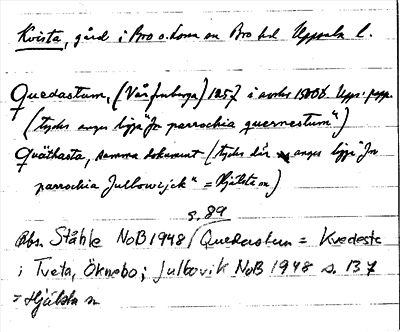 Kvista, gård i Bro s:n Bro hd Uppsala l.
Quedastum, (Vårfruberga) 1257 i avskr 1500b. Upps. papp.
(tycks anges ligga "in parrochia quernestum")
Quäthasta, samma dokument (tycks där anges ligga "in
parrochia Julbowijck" = Hjälsta sn)
s. 89
Obs. Ståhle NoB 1948 (Quedastum = Kvedesta
i Tveta, Öknebo; Julbovik NoB 1948 s. 137
= Hjälsta sn